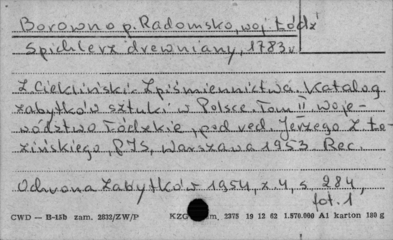 Borowno p. Radomsko, woj. Łódź
Spichlerz drewniany, 1783 r.
Z. Ciekliński. Z piśmiennictwa. Katalog
zabytków sztuki w Polsce. Tom II woje-
wództwo Łódzkie, pod red. Jerzego Z. Ło-
zińskiego, PIS, Warszawa 1953. Rec.
Ochrona Zabytków 1954, z. 4, s. 284,
fot. 1
CWD — H-15b zam. 2832/ZW/P KZG m, 2375 19 12 62 1.570.000 A1 karton 180 g